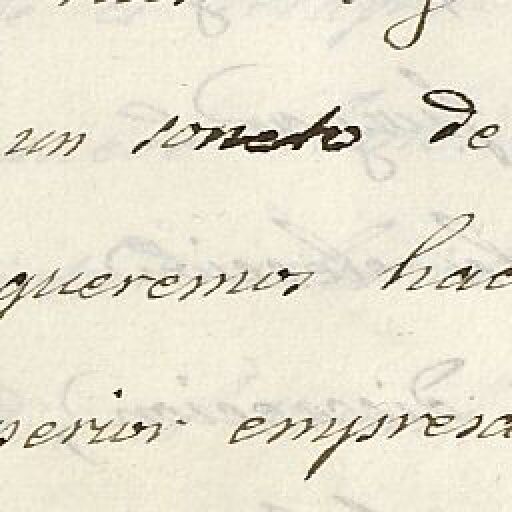 un soneto de
queremos hac
perior empresa